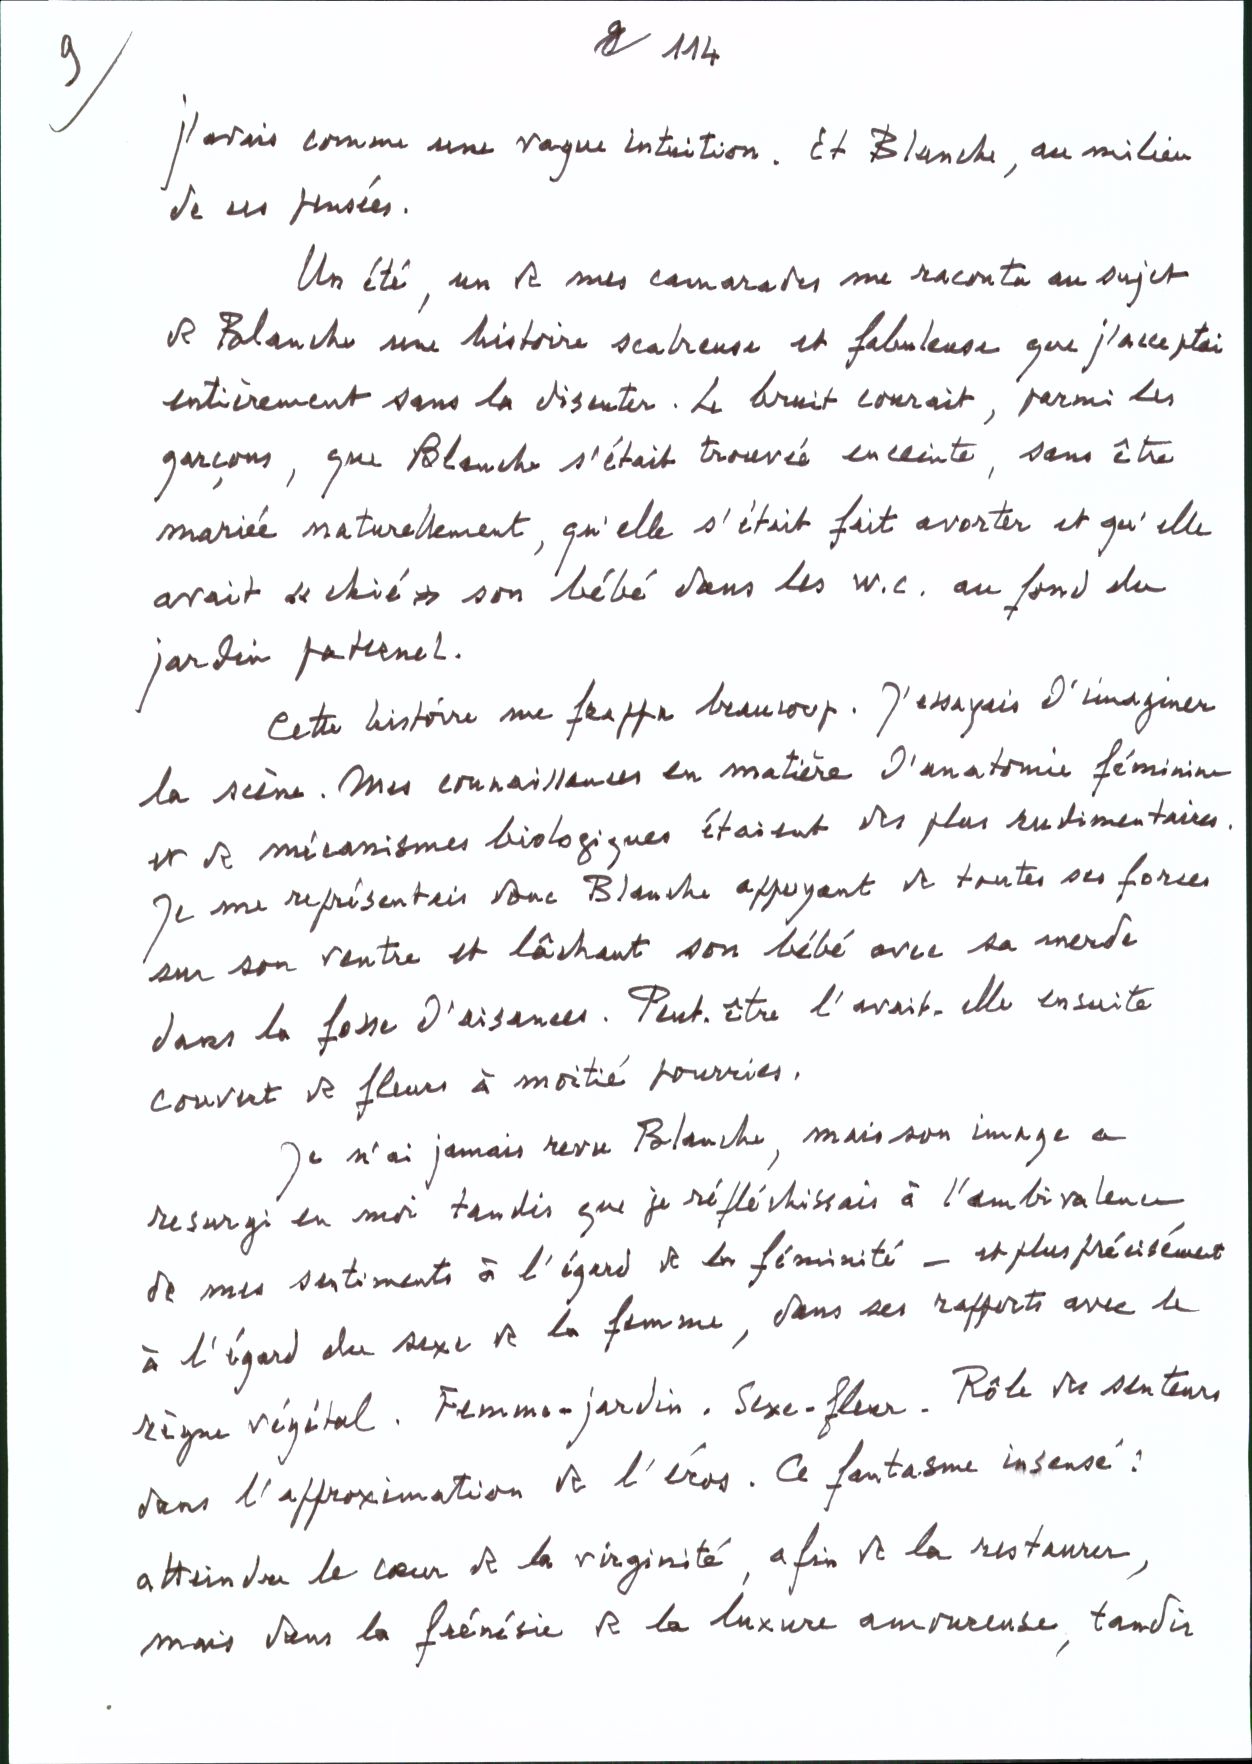 9/
114
j'avais comme une vague intuition. Et Blanche, au milieu
de ses pensées.
Un été, un de mes camarades me raconta au sujet
de Blanche une histoire scabreuse et fabuleuse que j'acceptai
entièrement sans la discuter. Le bruit courait, parmi les
garçons, que Blanche s'était trouvée enceinte, sans être
mariée naturellement, qu'elle s'était fait avorter et qu'elle
avait « chié » son bébé dans les w.c. au fond du
jardin paternel.
Cette histoire me frappa beaucoup. J'essayais d'imaginer
la scène. Mes connaissances en matière d'anatomie féminine
et de mécanismes biologiques étaient des plus rudimentaires.
Je me représentais donc Blanche appuyant de toutes ses forces
sur son ventre et lâchant son bébé avec sa merde
dans la fosse d'aisances. Peut-être l'avait-elle ensuite
couvert de fleurs à moitié pourries.
Je n'ai jamais revu Blanche, mais son image a
resurgi en moi tandis que je réfléchissais à l'ambivalence
de mes sentiments à l'égard de la féminité — et plus précisément
à l'égard du sexe de la femme, dans ses rapports avec le
règne végétal. Femme-jardin. Sexe-fleur. Rôle des senteurs
dans l'approximation de l'éros. Ce fantasme insensé :
atteindre le cœur de la virginité, afin de la restaurer,
mais dans la frénésie de la luxure amoureuse, tandis